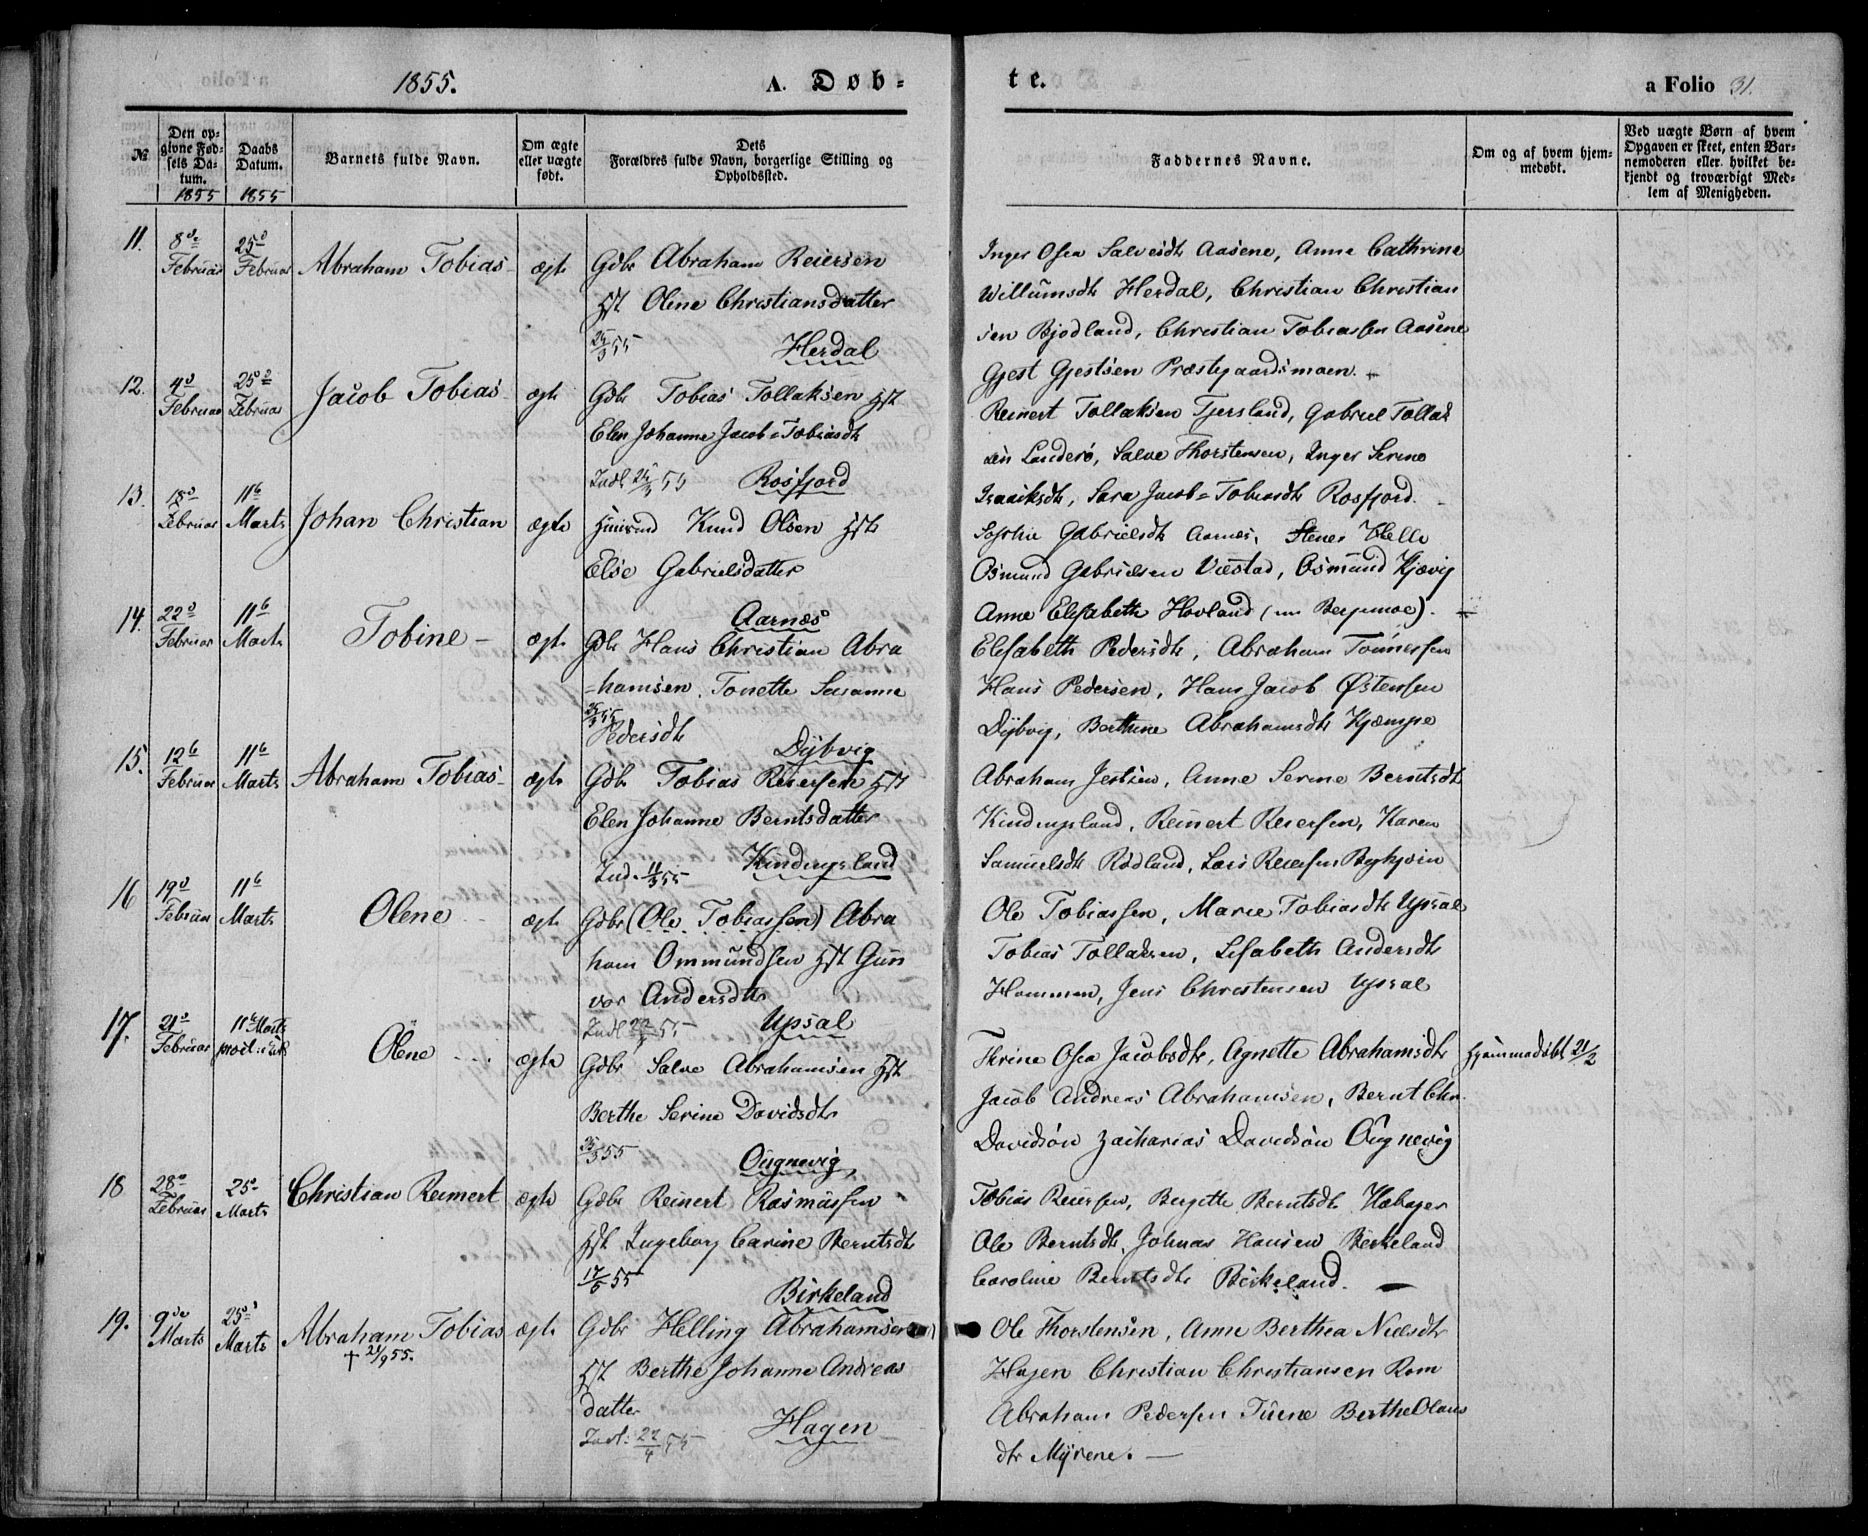 1855.
A. Døb-
te.
a Folio 31.
№
Den opgivne Fødsels Datum.
1855
Daabs Datum.
1855
Barnets fulde Navn.
Om ægte eller uægte født.
Dets Forældres fulde Navn, borgerlige Stilling og Opholdssted.
Faddernes Navne.
Om og af hvem hjemmedøbt.
Ved uægte Børn af hvem Opgaven er skeet, enten Barnemoderen eller hvilket bekjendt og troværdigt Medlem af Menigheden.
11. 8de Februar 25d Februar Abraham Tobias ægte
Gdbr Abraham Reiersen
Hst Olene Christiansdatter
Herdal
Inger Osea Salvesdtr Aasene, Anne Cathrine
Willumsdtr Herdal, Christian Christian
sen Bjodland, Christian Tobiassen Aasene
Gjest Gjestsen Præstegaardsmoen.
12. 4d Februar 25de Februar Jacob Tobias ægte
Gdb Tobias Tollaksen Hst
Elen Johanne Jacob-Tobiasdtr
Rosfjord
Reinert Tollaksen Tjersland, Gabriel Tollak
sen Landerø, Salve Thorstensen, Inger Serine
Isaaksdtr, Sara Jacob-Tobiasdtr Rosfjord.
13. 18d Februar 11te Marts Johan Christian ægte
Huusmd Knud Olsen Hst
Else Gabrielsdatter
Aarnæs
Sophie Gabrielsdtr Aarnæs, Stener Helle
Osmund Gabrielsen Væstad, Osmund Kjævig
Anne Elisabeth Hovland
14. 22d Februar 11te Marts Tobine ægte
Gdb Hans Christian Abra
hamsen, Tonette Susanne
Pedersdtr
Dybvig
Elisabeth Pedersdtr, Abraham Tønnessen
Hans Pedersen, Hans Jacob Østensen
Dybvig, Berthine Abrahamsdtr Kjæmpe
15. 12te Februar 11te Marts Abraham Tobias ægte
Gdbr Tobias Reiersen Hst
Elen Johanne Berntsdatter
Ind. 11/3 55 Kindingsland
Abraham Jessen, Anne Serine Berntsdtr
Kindingsland, Reinert Reiersen, Karen
Samuelsdtr Rødland, Lars Reiersen Bykjørn
16 19d Februar 11te Marts Olene ægte
Gdbr (Ole Tobiassen) Abra
ham Ommundsen Hst Gun
vor Andersdtr
Upsal
Ole Tobiassen, Marie Tobiasdtr Upsal
Tobias Tollaksen, Lisabeth Andersdtr
Hammen, Jens Christensen Upsal
17. 21d Februar 11te Marts Olene ægte
Gdbr Salve Abrahamsen Hst
Berthe Serine Davidsdtr
25/3 55 Øugnevig
Thrine Osea Jacobsdtr, Agnette Abrahamsdtr
Jacob Andreas Abrahamsen, Bernt Chr.
Davidsøn Zacharias Davidsøn Øugnevig
Hjemmedøbt 21/2
18 28de Februar 25de Marts Christian Reinert ægte
Gdbr Reinert Rasmussen
Hst Ingeborg Carine Berntsdtr
17/5 55
Birkeland
Tobias Reiersen, Bergitte Berntsdtr Habager
Ole Berntsdtr, Johnas Hansen Birkeland
Caroline Berntsdtr Birkeland.
19. 9de Marts 25d Marts Abraham Tobias ægte
† 21/9 55.
Gdbr Helling Abrahamsen
Hst Berthe Johanne Andreas
datter
Indl: 22/4 55 Hagen
Ole Thorstensen, Anne Berthea Nielsdtr
Hagen Christian Christiansen Rom
Abraham Pedersen Tuene Berthe Olaus
dtr Myrene.